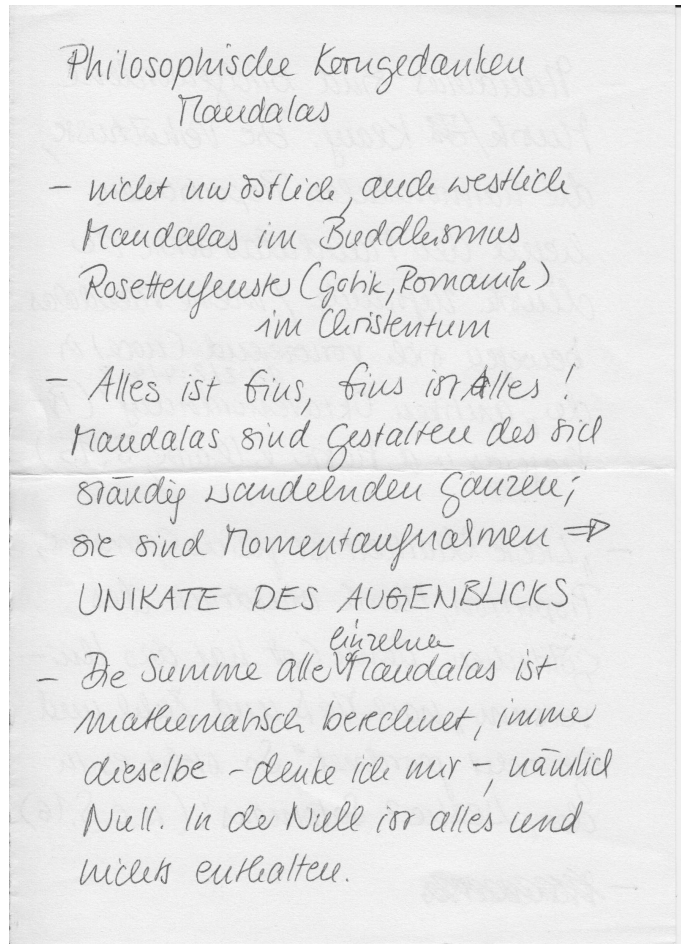 Philosophische Korngedanken
Mandalas
– nicht nur östlich, auch westlich
Mandalas im Buddhismus
Rosettenfenster (Gotik, Romanik)
im Christentum
– Alles ist Eins, Eins ist Alles!
Mandalas sind Gestalten des sich
ständig wandelnden Ganzen;
sie sind Momentaufnahmen ⇒
UNIKATE DES AUGENBLICKS
– Die Summe aller einzelner Mandalas ist
mathematisch berechnet, immer
dieselbe – denke ich mir –, nämlich
Null. In der Null ist alles und
nichts enthalten.